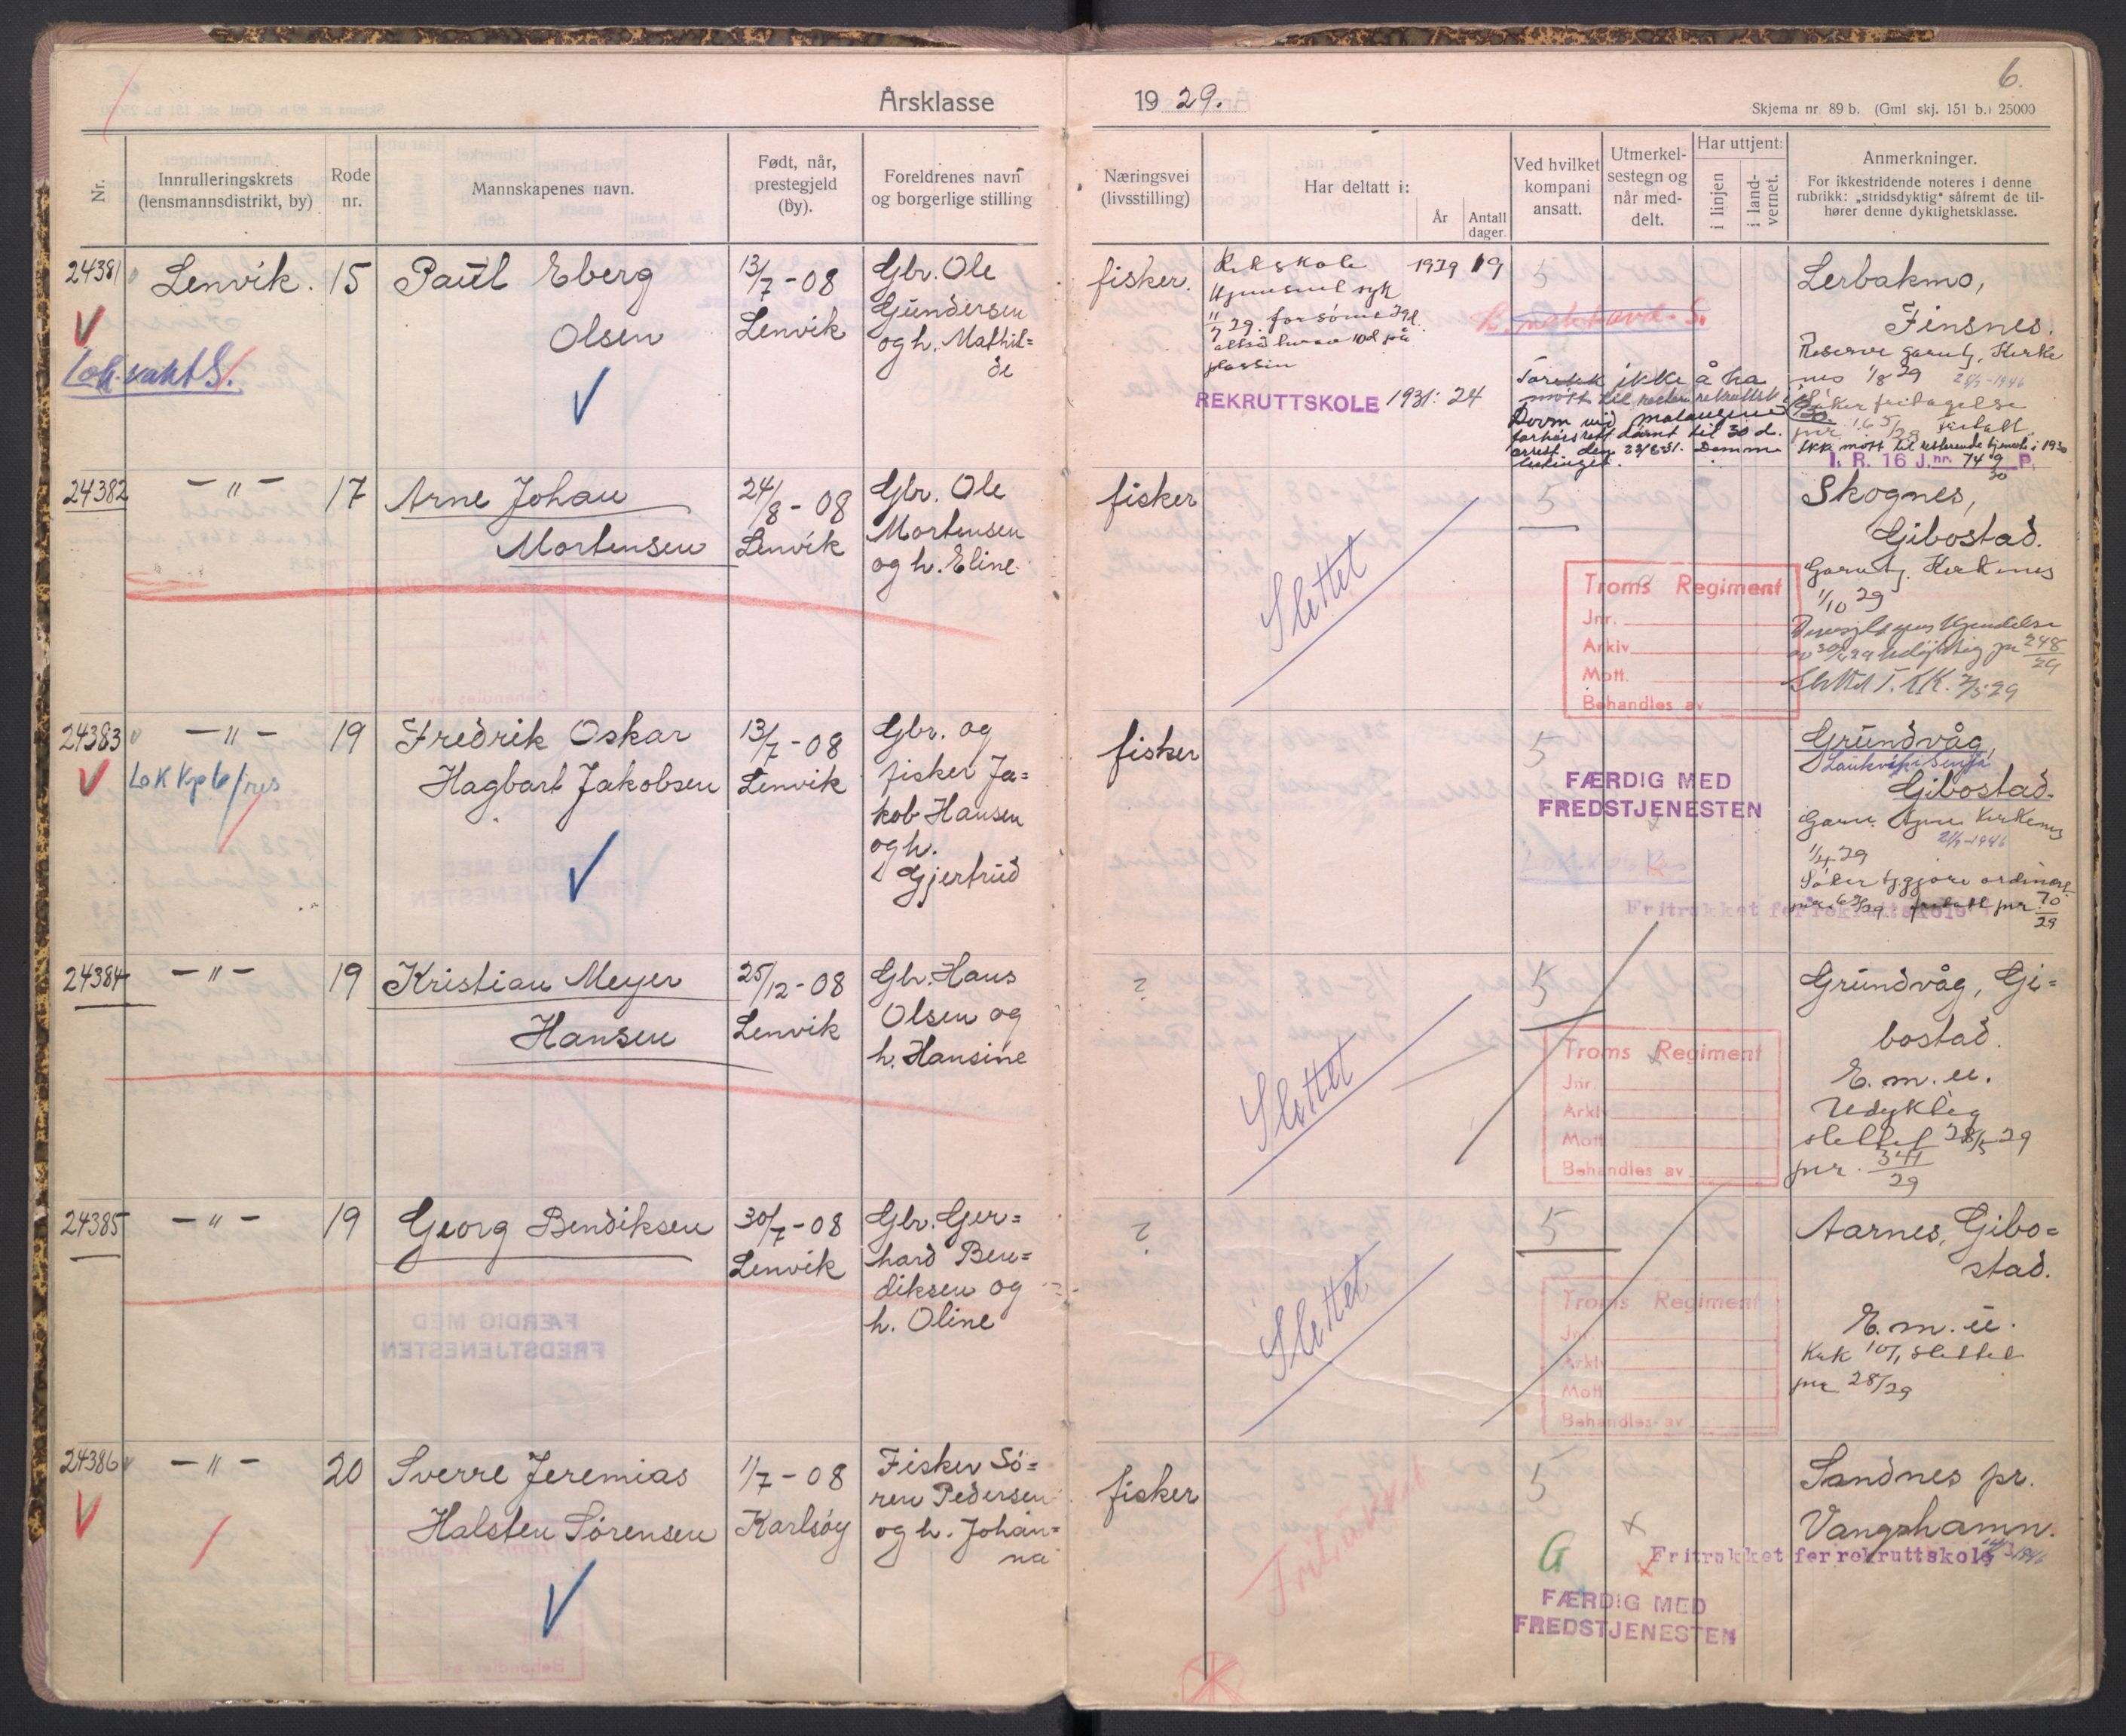 6.
Årsklasse 19 29.
Skjema nr. 89 b. (Gml skj. 151 b.) 25000
Nr.
Innrulleringskrets
(lensmannsdistrikt, by)
Rode
nr.
Mannskapenes navn.
Født, når,
prestegjeld
(by).
Foreldrenes navn
og borgerlige stilling
Næringsvei
(livsstilling)
Har deltatt i:
År
Antall
dager.
Ved hvilket
kompani
ansatt.
Utmerkel-
sestegn og
når med-
delt.
Har uttjent:
i linjen
i land-
vernet.
Anmerkninger.
For ikkestridende noteres i denne
rubrikk: „stridsdyktig" såfremt de til-
hører denne dyktighetsklasse.
24381
Lenvik.
15
Paul Eberg
Olsen
13/7-08
Lenvik
Gbr. Ole
Gundersen
og h. Mathil=
de
fisker.
Rekskole 1929 19
11/7 29. forsømt
plassen
REKRUTTSKOLE 1931: 24
5
ikke å ha
møtt til
Dom ved
forhørsrett dømt til 30 d.
arrest. den 23/6-31.
Lerbakmo,
Finsnes.
Reserve garntj. Kirke
nes 1/8 29
Søker fritagelse
Ikke møtt til resterende tjeneste i 1930
I. R. 16 J.nr. 749 P.
30
24382
— " —
17
Arne Johan
Mortensen
24/8-08
Lenvik
Gbr. Ole
Mortensen
og h. Eline
fisker
Slettet
5
Troms Regiment
Jnr.
Arkiv
Mott.
Behandles av
Skognes,
Gibostad.
Garntj. Kirkenes
1/10 29
udyktig jnr 248
29
24383
— " —
19
Fredrik Oskar
Hagbart Jakobsen
13/7-08
Lenvik
Gbr. og
fisker Ja=
kob Hansen
og h.
Gjertrud
fisker
5
FÆRDIG MED
FREDSTJENESTEN
Fritrukket for rekruttskole
Grundvåg,
Gibostad.
Garn. tjen. Kirkenes
21/9-1946
1/4 29
Søker tjgjøre ordinært.
jnr 70
29
24384
— " —
19
Kristian Meyer
Hansen
25/12-08
Lenvik
Gbr. Hans
Olsen og
h. Hansine
?
Slettet
5
Troms Regiment
Jnr.
Arkiv
Mott.
Behandles av
Grundvåg, Gi=
bostad.
E. m. u.
Udyktig
slettet 28/5 29
jnr. 341
29
24385
— " —
19
Georg Bendiksen
30/7-08
Lenvik
Gbr. Ger=
hard Ben=
diksen og
h. Oline
?
Slettet
5
Troms Regiment
Jnr.
Arkiv
Mott.
Behandles av
Aarnes, Gibo=
stad.
E. m. u.
slettet
jnr 28/29
24386
— " —
20
Sverre Jeremias
Halsten Sørensen
1/7-08
Karlsøy
Fisker Sø=
ren Pedersen
og h. Johan=
na
fisker
Fritrukket
5
G
Fritrukket for rekruttskole
FÆRDIG MED
FREDSTJENESTEN
Sandnes pr.
Vangshamn.